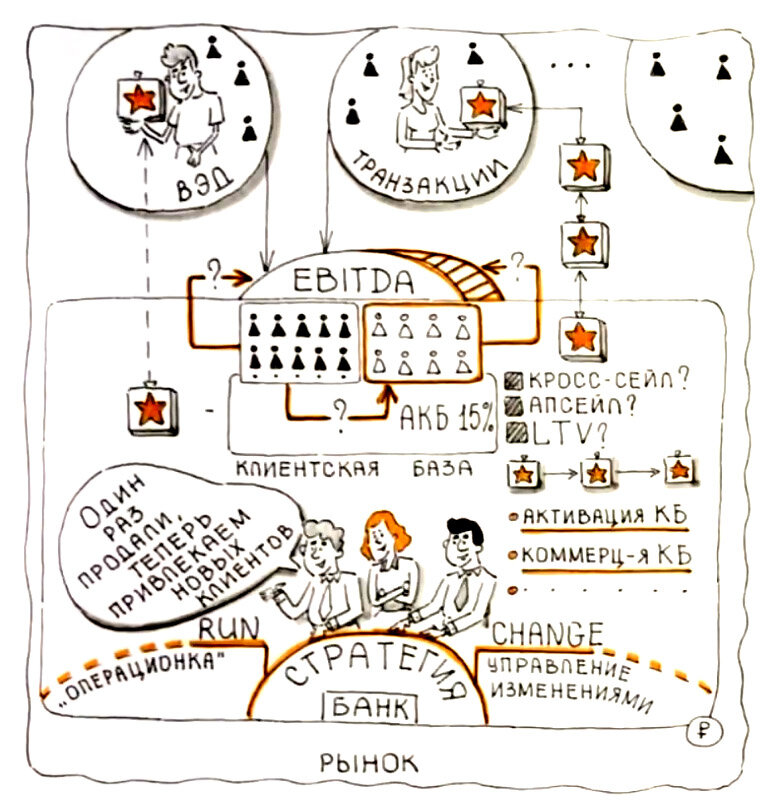 ВЭД
ТРАНЗАКЦИИ
...
?
EBITDA
?
?
АКБ 15%
КЛИЕНТСКАЯ БАЗА
КРОСС-СЕЙЛ?
АПСЕЙЛ?
LTV?
АКТИВАЦИЯ КБ
КОММЕРЦ-Я КБ
. . . . . .
ОДИН
РАЗ
ПРОДАЛИ,
ТЕПЕРЬ
ПРИВЛЕКАЕМ
НОВЫХ
КЛИЕНТОВ
RUN
CHANGE
„ОПЕРАЦИОНКА"
СТРАТЕГИЯ
УПРАВЛЕНИЕ
ИЗМЕНЕНИЯМИ
БАНК
₽
РЫНОК